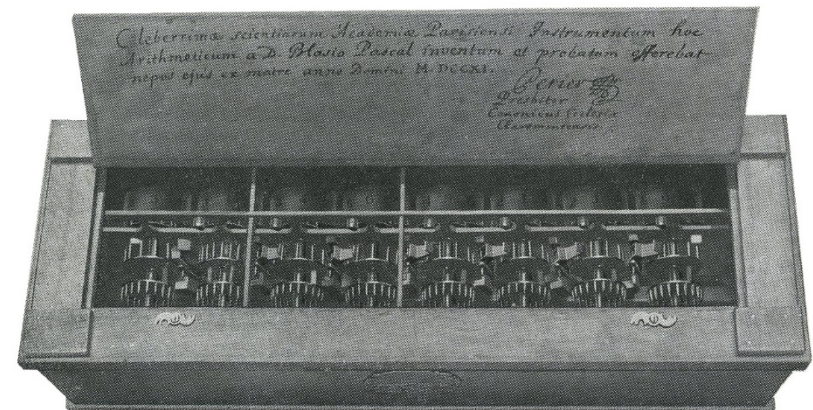 Celeberrimæ scientiarum Academiæ Parisiensi Instrumentum hoc
Arithmeticum a D. Blasio Pascal inventum et probatum offerebat
nepos ejus ex matre anno Domini M. DCCXI.
Perier
Presbiter
Canonicus Ecclesiæ
Claromontensis.